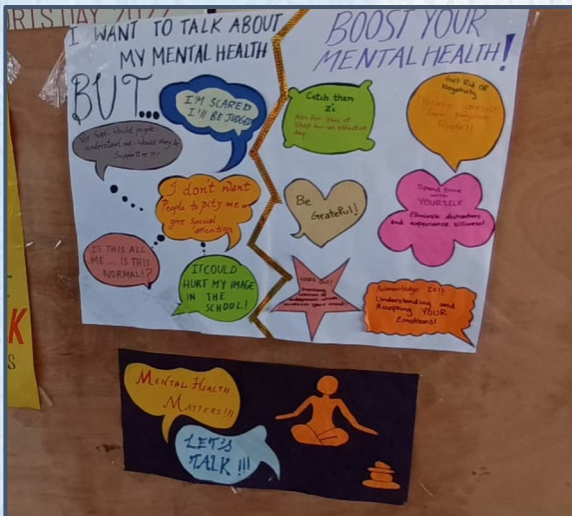 RTS DAY 2022
I WANT TO TALK ABOUT
MY MENTAL HEALTH
BUT...
I'M SCARED
I'LL BE JUDGED
Not Sure. Would people
understand me. Would they be
Supportive???
I don't want
People to pity me or
give special
attention
IS THIS ALL
ME... IS THIS
NORMAL!?
IT COULD
HURT MY IMAGE
IN THE
SCHOOL!
BOOST YOUR
MENTAL HEALTH!
Catch them
Z's
Get Rid Of
Negativity
Be
Grateful!
Spend time
with
YOURSELF
Eliminate distractions
and experience stillness!
Work Out!
Acknowledge It!!
Understanding and
Accepting YOUR
Emotions!
K
S
MENTAL HEALTH
MATTERS!!!
LET'S
TALK!!!